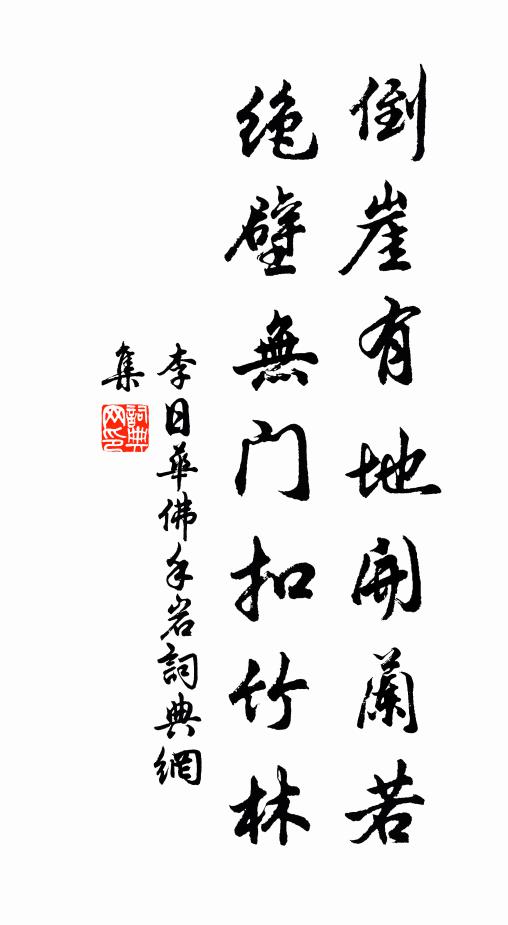 倒崖有地開蘭若
絶壁無門扣竹林
李日華佛手岩詞典網
集
詞典
网印